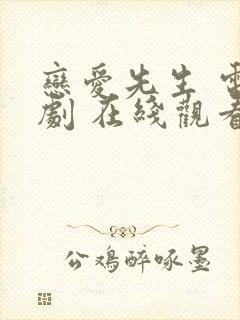 戀愛先生 電
劇 在綫觀看
公鷄醉啄墨